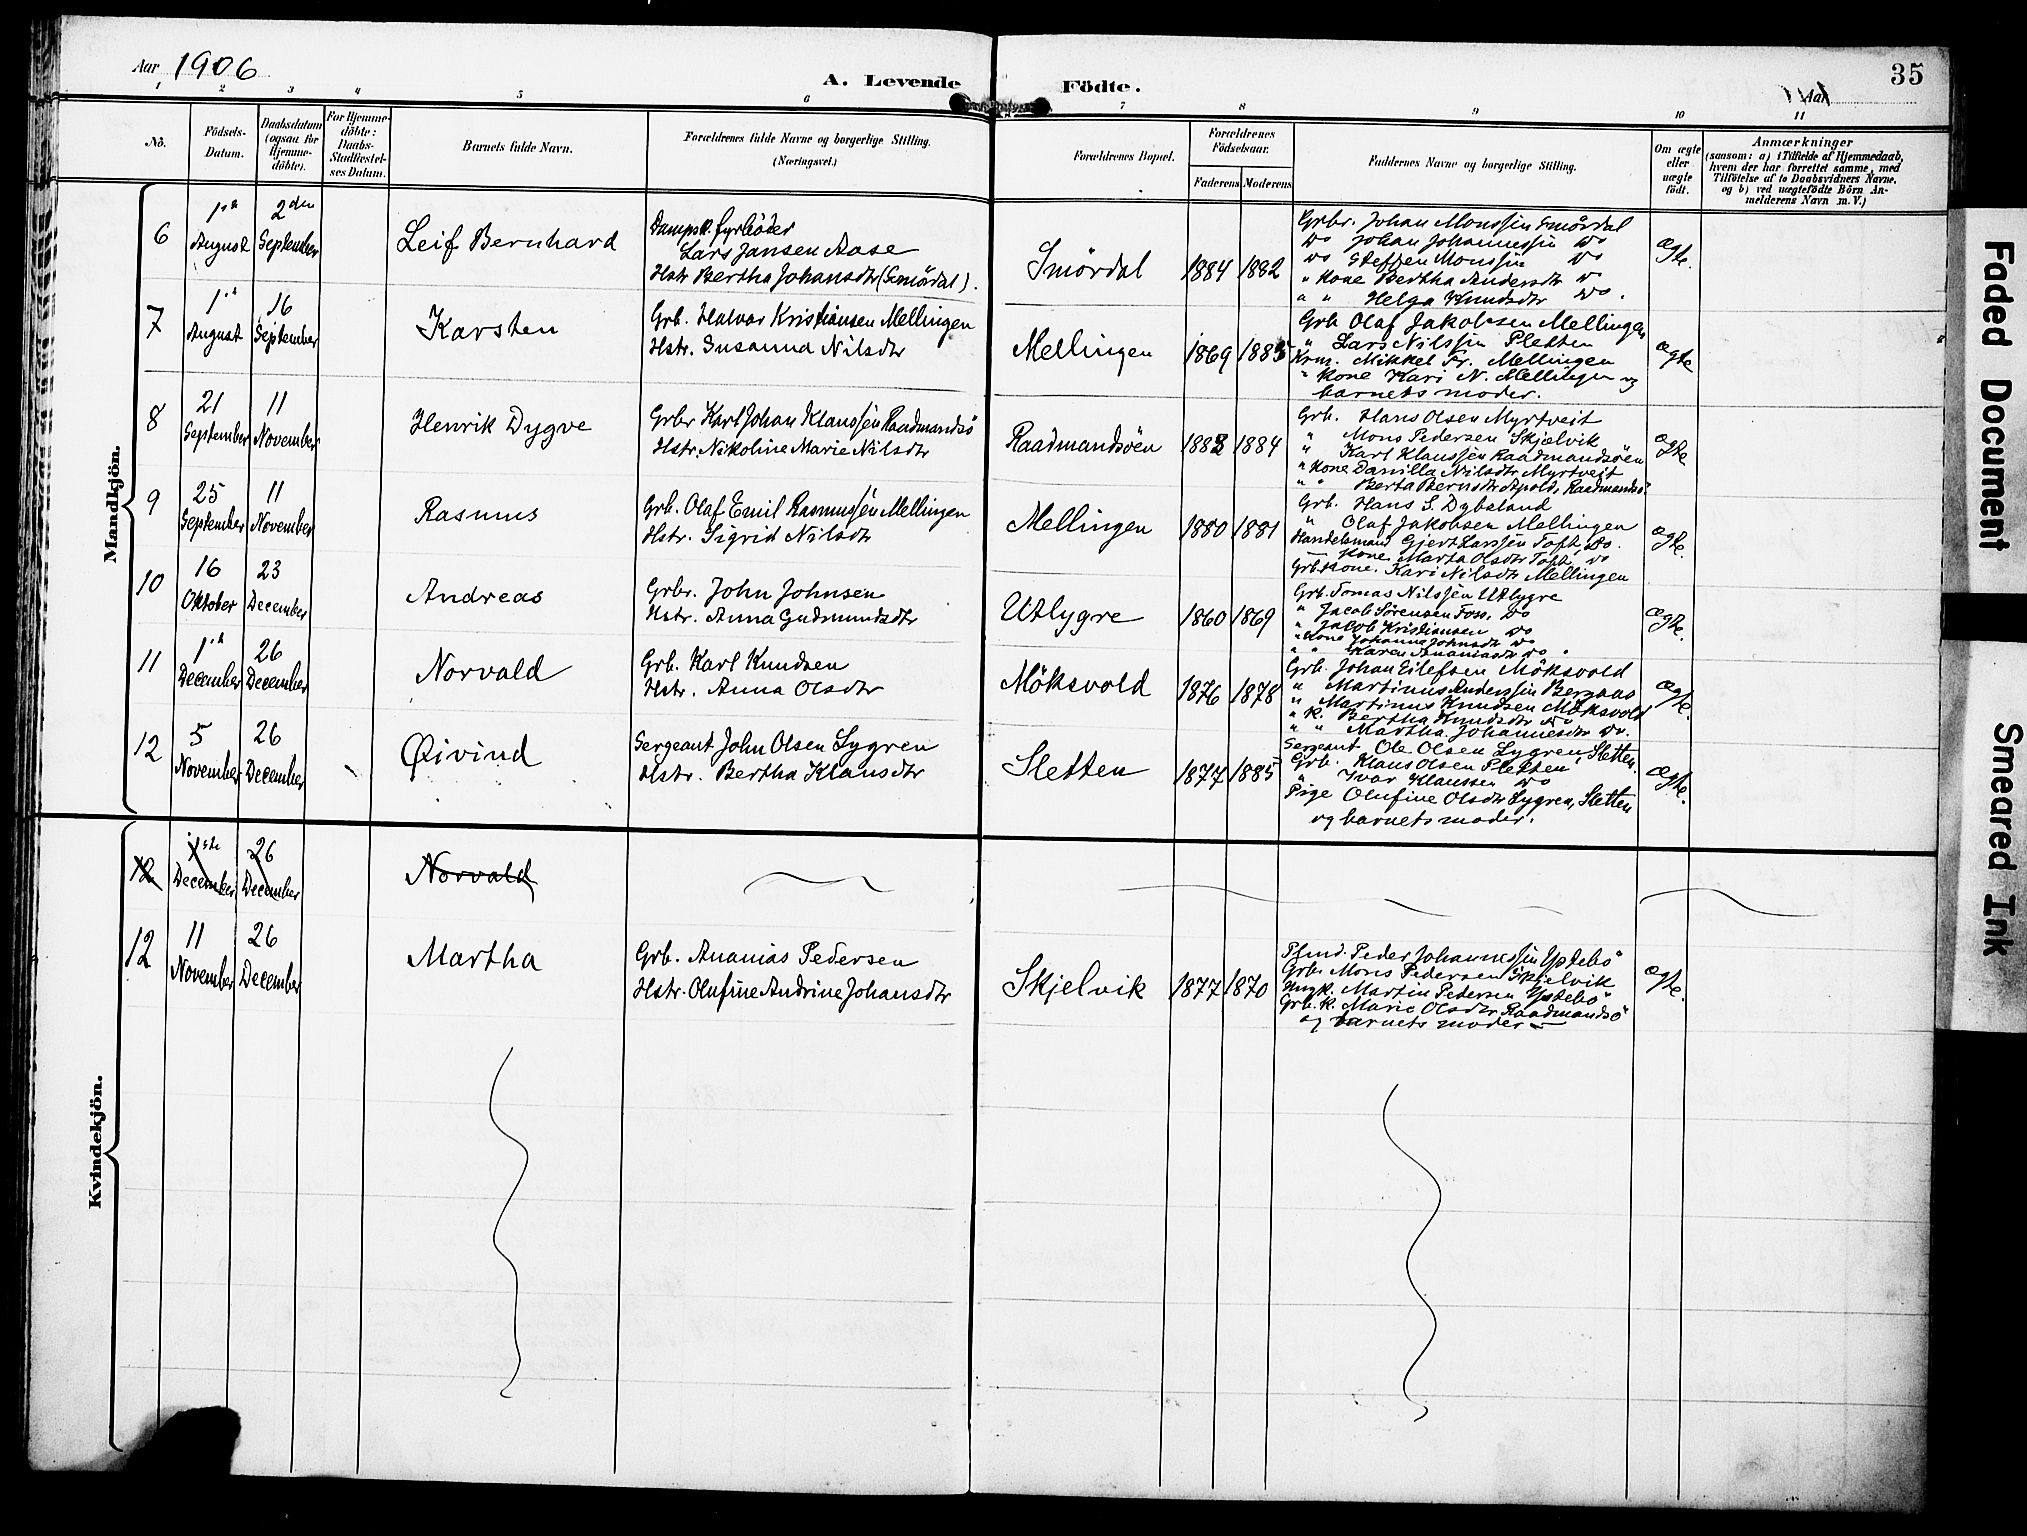 Aar 1906
A. Levende Födte.
35
Aar
1 2 3 4 5 6 7 8 9 10 11
No.
Födsels-
Datum.
Daabsdatum
(ogsaa for
Hjemme-
döbte).
For Hjemme-
döbte:
Daabs-
Stadfæstel-
ses Datum.
Barnets fulde Navn.
Forældrenes fulde Navne og borgerlige Stilling.
(Næringsvei.)
Forældrenes Bopæl.
Forældrenes
Födselsaar.
Faderens Moderens
Faddernes Navne og borgerlige Stilling.
Om ægte
eller
uægte
födt.
Anmærkninger
(saasom: a) i Tilfælde af Hjemmedaab,
hvem der har forrettet samme, med
Tilföielse af to Daabsvidners Navne,
og b) ved uægtefödte Börn An-
melderens Navn m. V.)
Mandkjön.
6
1ste August
2den September
Leif Bernhard
Dampsk. fyrböder
Lars Jansen Aase
Hstr Bertha Johansdtr (Smördal).
Smördal
1884 1882
Grbr. Johan Monssen Smördal
Do Johan Johannessen Do
Do Steffen Monssen Do
" Kone Bertha Andersdtr Do
" " Helga Knudsdtr Do.
Ægte.
7
1ste August
16 September
Karsten
Grb. Halvor Kristiansen Mellingen
Hstr. Susanna Nilsdtr
Mellingen
1869 1885
Grb Olaf Jakobsen Mellingen
" Lars Nilssen Sletten
Krm. Mikkel Fr. Mellingen
" Kone Kari N. Mellingen og
barnets moder.
Ægte
8
21 September
11 November
Henrik Dygve
Grbr Karl Johan Klaussen Raadmandsö
Hstr. Nikoline Marie Nilsdtr
Raadmandsöen
1883 1884
Grb. Hans Olsen Myrtveit
" Mons Pedersen Skjelvik
" Karl Klaussen Raadmandsöen
" Kone Danilla Nilsdtr Myrtveit
" " Berta Berntsdtr Raadmandsö
Ægte
9
25 September
11 November
Rasmus
Grb. Olaf Emil Rasmussen Mellingen
Hstr. Sigrid Nilsdtr
Mellingen
1880 1881
Grb. Hans S. Dybsland
" Olaf Jakobsen Mellingen
Handelsmand Gjert Larssen Toft, Do.
— Kone Marta Olsdtr Toft, Do
Grb Kone. Kari Nilsdtr Mellingen
Ægte.
10
16 Oktober
23 December
Andreas
Grbr. John Johnsen
Hstr. Anna Gudmundsdtr
Utlygre
1860 1869
Grb. Tomas Nilssen Utlygre
" Jacob Sörensen Foss, Do
" Jacob Kristiansen Do
" Kone Johanna Johnsdtr Do
" " Karen Ananiasdtr Do.
Ægte.
11
1ste December
26 December
Norvald
Grb. Karl Knudsen
Hstr. Anna Olsdtr
Möksvold
1876 1878
Grb. Johan Eilefsen Möksvold
" Martinus Anderssen Bergaas
" Martinus Knudsen Möksvold
" K. Bertha Knudsdtr Do
" " Martha Johannesdtr Do.
Ægte.
12
5 November
26 December
Øivind
Sergeant John Olsen Lygren
Hstr. Bertha Klausdtr
Sletten
1877 1885
Sergeant Ole Olsen Lygren, Sletten.
Grb. Klaus Olsen Sletten
" Ivar Klaussen Do
Pige Olufine Olsdtr Lygren, Sletten
og barnets moder.
Ægte.
Kvindekjön.
12
1ste December
26 December
Norvald
12
11 November
26 December
Martha
Grb. Ananias Pedersen
Hstr. Olufine Andrine Johansdtr
Skjelvik
1877 1870
Peder Johannessen Ystebö
Grb. Mons Pedersen Skjelvik
Ungk. Martin Pedersen Ystebö
Grb. K. Marie Olsdtr Raadmandsö
og barnets moder —
Ægte.
Faded Document
Smeared Ink